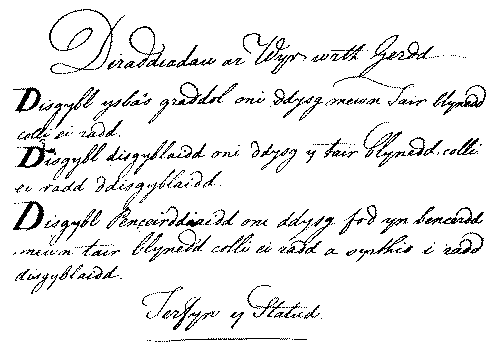 Diraddiadau ar Wyr wrth Gerdd
Disgybl ysbâs graddol oni ddysg mewn Tair blynedd
colli ei radd.
Disgybl disgyblaidd oni ddysg y tair blynedd colli
ei radd ddisgyblaidd.
Disgybl Penceirddiaidd oni ddysg fod yn bencerdd
mewn tair blynedd colli ei radd a syrthio i radd
disgyblaidd.
Terfyn y Statud.